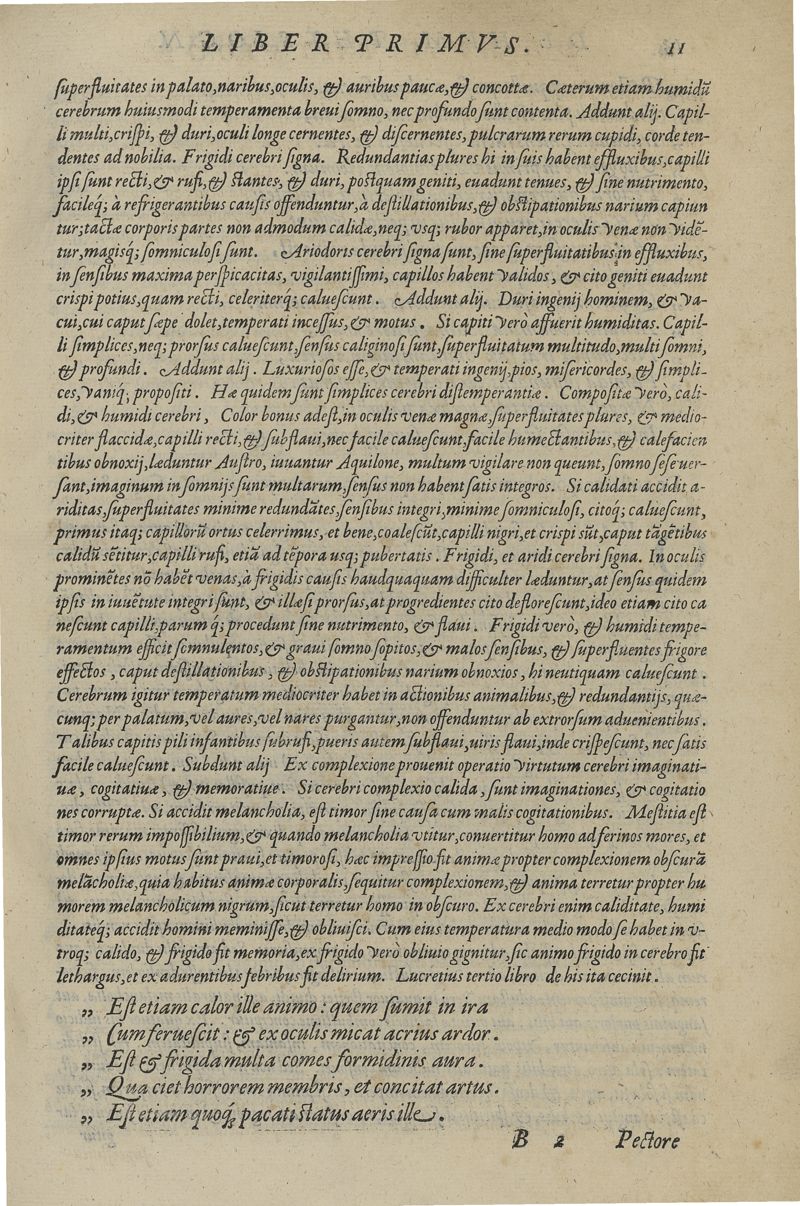 LIBER PRIMVS. 11
ſuperfluitates in palato,naribus,oculis, & auribus paucæ,& concottæ. Cæterum etiam humidũ
cerebrum huiusmodi temperamenta breui ſomno, nec profundo ſunt contenta. Addunt alij. Capil-
li multi,criſpi, & duri,oculi longe cernentes, & diſcernentes,pulcrarum rerum cupidi, corde ten-
dentes ad nobilia. Frigidi cerebri ſigna. Redundantias plures hi in ſuis habent effluxibus,capilli
ipſi ſunt recti,& rufi,& ſtantes, & duri, poſtquam geniti, euadunt tenues, & ſine nutrimento,
facileq; à refrigerantibus cauſis offenduntur,à deſtillationibus,& obſtipationibus narium capiun
tur;tactæ corporis partes non admodum calidæ,neq; vsq; rubor apparet,in oculis venæ non vidẽ-
tur,magisq; ſomniculoſi ſunt. Ariodoris cerebri ſigna ſunt, ſine ſuperfluitatibus in effluxibus,
in ſenſibus maxima perſpicacitas, vigilantiſſimi, capillos habent validos, & cito geniti euadunt
crispi potius,quam recti, celeriterq; calueſcunt. Addunt alij. Duri ingenij hominem, & va-
cui,cui caput ſæpe dolet,temperati inceſſus,& motus. Si capiti verò affuerit humiditas. Capil-
li ſimplices,neq; prorſus calueſcunt,ſenſus caliginoſi ſunt,ſuperfluitatum multitudo,multi ſomni,
& profundi. Addunt alij. Luxurioſos eſſe,& temperati ingenij,pios, miſericordes, & ſimpli-
ces,vaniq; propoſiti. Hæ quidem ſunt ſimplices cerebri diſtemperantiæ. Compoſitæ verò, cali-
di,& humidi cerebri, Color bonus adeſt,in oculis venæ magnæ,ſuperfluitates plures, & medio-
criter flaccidæ,capilli recti,& ſubflaui,nec facile calueſcunt,facile humectantibus,& calefacien
tibus obnoxij,læduntur Auſtro, iuuantur Aquilone, multum vigilare non queunt,ſomno ſeſe uer-
ſant,imaginum in ſomnijs ſunt multarum,ſenſus non habent ſatis integros. Si calidati accidit a-
riditas,ſuperfluitates minime redundãtes,ſenſibus integri,minime ſomniculoſi, citoq; calueſcunt,
primus itaq; capillorũ ortus celerrimus, et bene,coaleſcũt,capilli nigri,et crispi sũt,caput tãgẽtibus
calidũ sẽtitur,capilli rufi, etiã ad tẽpora usq; pubertatis. Frigidi, et aridi cerebri ſigna. In oculis
prominẽtes nõ habẽt venas,à frigidis cauſis haudquaquam difficulter læduntur,at ſenſus quidem
ipſis in iuuẽtute integri ſunt, & illæſi prorſus,at progredientes cito defloreſcunt,ideo etiam cito ca
neſcunt capilli,parum q; procedunt ſine nutrimento, & flaui. Frigidi verò, & humidi tempe-
ramentum efficit ſomnulentos,& graui ſomno ſopitos,& malos ſenſibus, & ſuperfluentes frigore
effectos, caput deſtillationibus, & obſtipationibus narium obnoxios, hi neutiquam calueſcunt.
Cerebrum igitur temperatum mediocriter habet in actionibus animalibus,& redundantijs, quæ-
cunq; per palatum,vel aures,vel nares purgantur,non offenduntur ab extrorſum aduenientibus.
Talibus capitis pili infantibus ſubrufi,pueris autem ſubflaui,uiris flaui,inde criſpeſcunt, nec ſatis
facile calueſcunt. Subdunt alij Ex complexione prouenit operatio virtutum cerebri imaginati-
uæ, cogitatiuæ, & memoratiue. Si cerebri complexio calida, ſunt imaginationes, & cogitatio
nes corruptæ. Si accidit melancholia, eſt timor ſine cauſa cum malis cogitationibus. Meſtitia eſt
timor rerum impoſſibilium,& quando melancholia vtitur,conuertitur homo ad ferinos mores, et
omnes ipſius motus ſunt praui,et timoroſi, hæc impreſſio fit animæ propter complexionem obſcurã
melãcholiæ,quia habitus animæ corporalis,ſequitur complexionem,& anima terretur propter hu
morem melancholicum nigrum,ſicut terretur homo in obſcuro. Ex cerebri enim caliditate, humi
ditateq; accidit homini meminiſſe,& obliuiſci. Cum eius temperatura medio modo ſe habet in v-
troq; calido, & frigido fit memoria,ex frigido verò obliuio gignitur,ſic animo frigido in cerebro fit
lethargus,et ex adurentibus febribus fit delirium. Lucretius tertio libro de his ita cecinit.
„ Eſt etiam calor ille animo: quem ſumit in ira
„ Cum ferueſcit: & ex oculis micat acrius ardor.
„ Eſt & frigida multa comes formidinis aura.
„ Qua ciet horrorem membris, et concitat artus.
„ Eſt etiam quoq; pacati ſtatus aeris ille.
B 2 Pectore